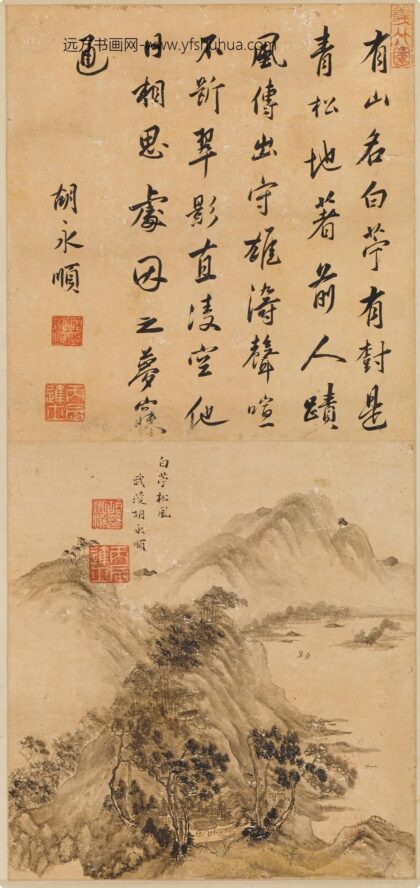 远方书画网-www.yfshuhua.com
有山名白苧有樹是
青松地著前人蹟
風傳出守雄濤聲喧
不斷翠影直凌空他
日相思處因之夢寐
通
胡永順
白苧松風
武陵胡永順